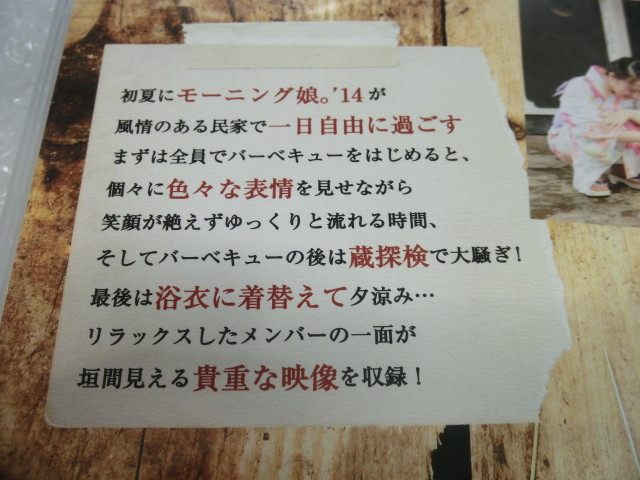 初夏にモーニング娘。'14が
風情のある民家で一日自由に過ごす
まずは全員でバーベキューをはじめると、
個々に色々な表情を見せながら
笑顔が絶えずゆっくりと流れる時間、
そしてバーベキューの後は蔵探検で大騒ぎ!
最後は浴衣に着替えて夕涼み…
リラックスしたメンバーの一面が
垣間見える貴重な映像を収録!